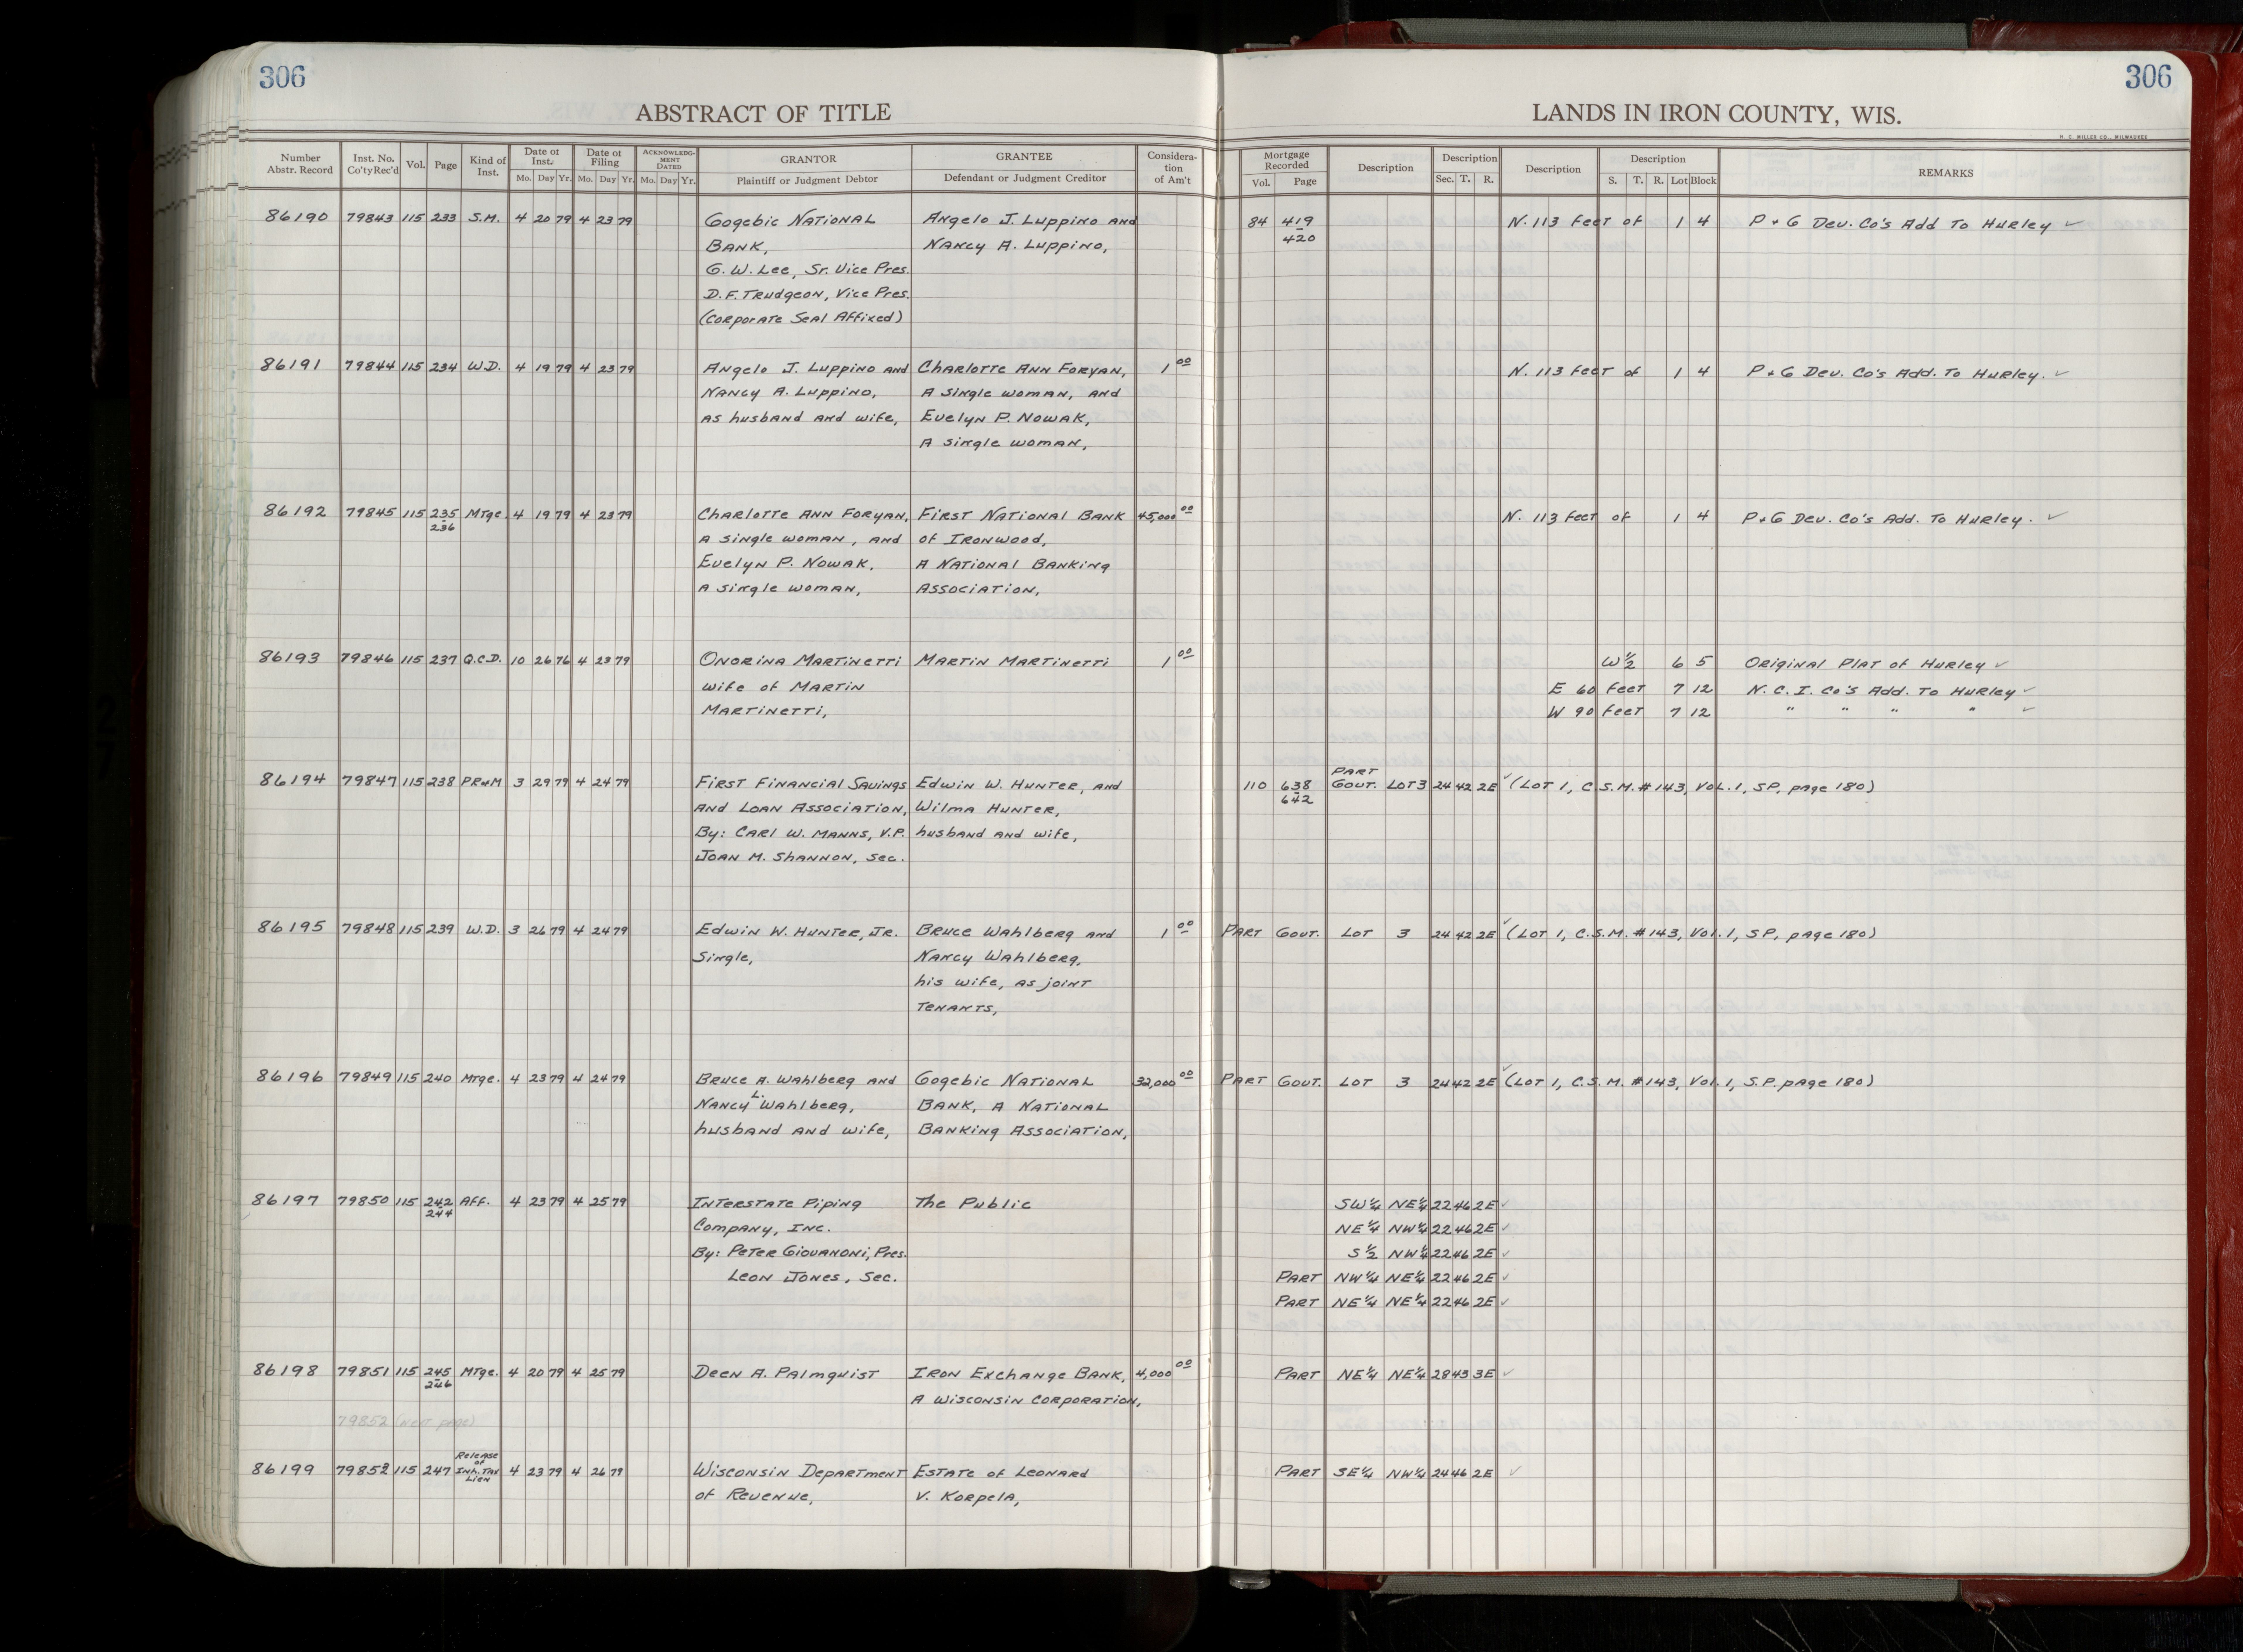 306
306
ABSTRACT OF TITLE
LANDS IN IRON COUNTY, WIS.
H. C. MILLER CO., MILWAUKEE
Number Abstr. Record
Inst. No. Co'ty Rec'd
Vol.
Page
Kind of Inst.
Date of Inst.
Mo. Day Yr.
Date of Filing
Mo. Day Yr.
ACKNOWLEDG-MENT DATED
Mo. Day Yr.
GRANTOR
Plaintiff or Judgment Debtor
GRANTEE
Defendant or Judgment Creditor
Considera-tion of Am't
Mortgage Recorded
Vol. Page
Description
Description
Sec. T. R.
Description
Description
S. T. R. Lot Block
REMARKS
86190 79843 115 233 S.M. 4 20 79 4 23 79 Gogebic National Angelo J. Luppino and 84 419- N. 113 Feet of 1 4 P + G Dev. Co's Add To Hurley ✓
Bank, Nancy A. Luppino, 420
G. W. Lee, Sr. Vice Pres.
D. F. Trudgeon, Vice Pres.
(Corporate Seal Affixed)
86191 79844 115 234 W.D. 4 19 79 4 23 79 Angelo J. Luppino and Charlotte Ann Foryan, 1 00 N. 113 Feet of 1 4 P + G Dev. Co's Add. To Hurley. ✓
Nancy A. Luppino, A single woman, and
as husband and wife, Evelyn P. Nowak,
A single woman,
86192 79845 115 235- Mtge. 4 19 79 4 23 79 Charlotte Ann Foryan, First National Bank 45,000 00 N. 113 feet of 1 4 P + G Dev. Co's Add. To Hurley. ✓
236 A single woman, and of Ironwood,
Evelyn P. Nowak, A National Banking
A single woman, Association,
86193 79846 115 237 Q.C.D. 10 26 76 4 23 79 Onorina Martinetti Martin Martinetti 1 00 W ½ 6 5 Original Plat of Hurley ✓
wife of Martin E 60 Feet 7 12 N. C. I. Co's Add. To Hurley ✓
Martinetti, W 90 Feet 7 12 " " " " ✓
86194 79847 115 238 PR of M 3 29 79 4 24 79 First Financial Savings Edwin W. Hunter, and 110 638- Part Govt. Lot 3 24 42 2E ✓ (Lot 1, C.S.M. #143, Vol. 1, SP, page 180)
and Loan Association, Wilma Hunter, 642
By: Carl W. Manns, V.P. husband and wife,
Joan M. Shannon, Sec.
86195 79848 115 239 W.D. 3 26 79 4 24 79 Edwin W. Hunter, Jr. Bruce Wahlberg and 1 00 Part Govt. Lot 3 24 42 2E ✓ (Lot 1, C.S.M. #143, Vol. 1, S.P., page 180)
Single, Nancy Wahlberg,
his wife, as joint
Tenants,
86196 79849 115 240 Mtge. 4 23 79 4 24 79 Bruce A. Wahlberg and Gogebic National 32,000 00 Part Govt. Lot 3 24 42 2E ✓ (Lot 1, C.S.M. #143, Vol. 1, S.P. page 180)
Nancy L. Wahlberg, Bank, A National
husband and wife, Banking Association,
86197 79850 115 242- Aff. 4 23 79 4 25 79 Interstate Piping The Public SW¼ NE¼ 22 46 2E ✓
244 Company, Inc. NE¼ NW¼ 22 46 2E ✓
By: Peter Giovanoni, Pres. S½ NW¼ 22 46 2E ✓
Leon Jones, Sec. Part NW¼ NE¼ 22 46 2E ✓
Part NE¼ NE¼ 22 46 2E ✓
86198 79851 115 245- Mtge. 4 20 79 4 25 79 Deen A. Palmquist Iron Exchange Bank, 4,000 00 Part NE¼ NE¼ 28 43 3E ✓
246 A Wisconsin Corporation,
79852 (next page)
86199 79852 115 247 Release of Inh. Tax Lien 4 23 79 4 26 79 Wisconsin Department Estate of Leonard Part SE¼ NW¼ 24 46 2E ✓
of Revenue, V. Korpela,